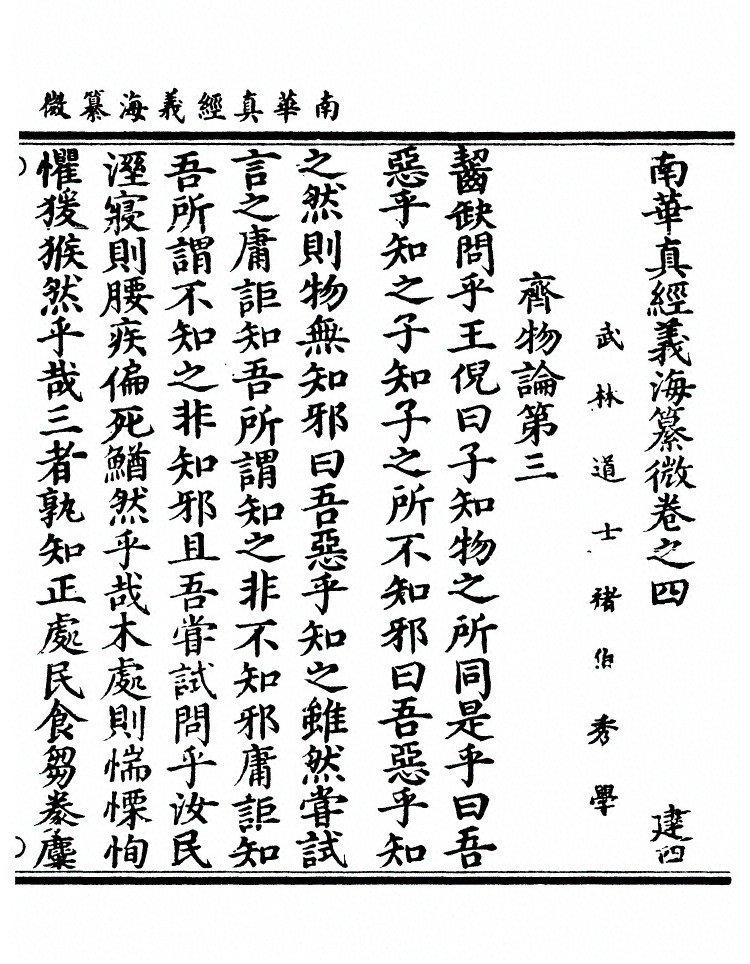 南華真經義海纂微
南華真經義海纂微卷之四 建四
武林道士褚伯秀學
齊物論第三
齧缺問乎王倪曰子知物之所同是乎曰吾
惡乎知之子知子之所不知邪曰吾惡乎知
之然則物無知邪曰吾惡乎知之雖然嘗試
言之庸詎知吾所謂知之非不知邪庸詎知
吾所謂不知之非知邪且吾嘗試問乎汝民
溼寢則腰疾偏死鰌然乎哉木處則惴慄恂
懼猨猴然乎哉三者孰知正處民食芻豢麋